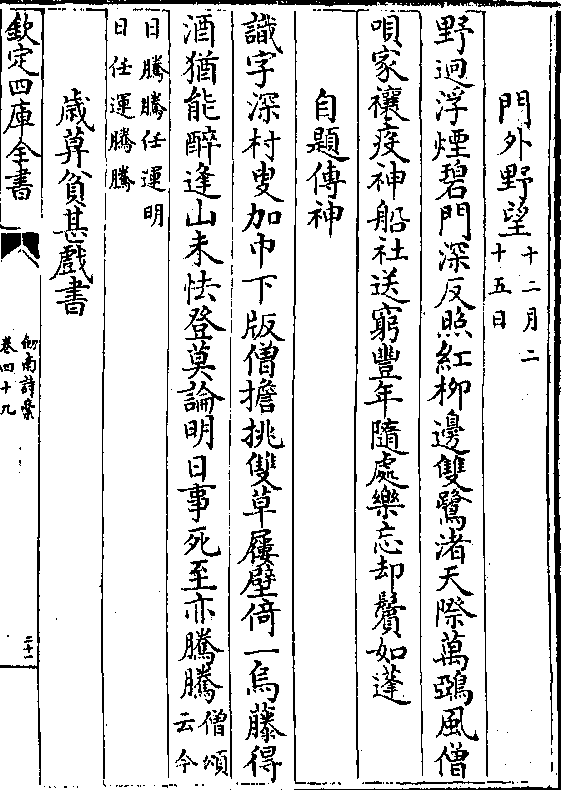 門外野望十二月二
十五日
野迥浮煙碧門深反照紅柳邊雙鷺渚天際萬鵶風僧
唄家禳疫神船社送窮豐年隨處樂忘却鬢如蓬
自題傳神
識字深村叟加巾下版僧擔挑雙草屨壁倚一烏藤得
酒猶能醉逢山未怯登莫論明日事死至亦騰騰僧頌
云今
日騰騰任運明
日任運騰騰
歲莫貧甚戲書
欽定四庫全書
劒南詩稾
卷四十九
二十一